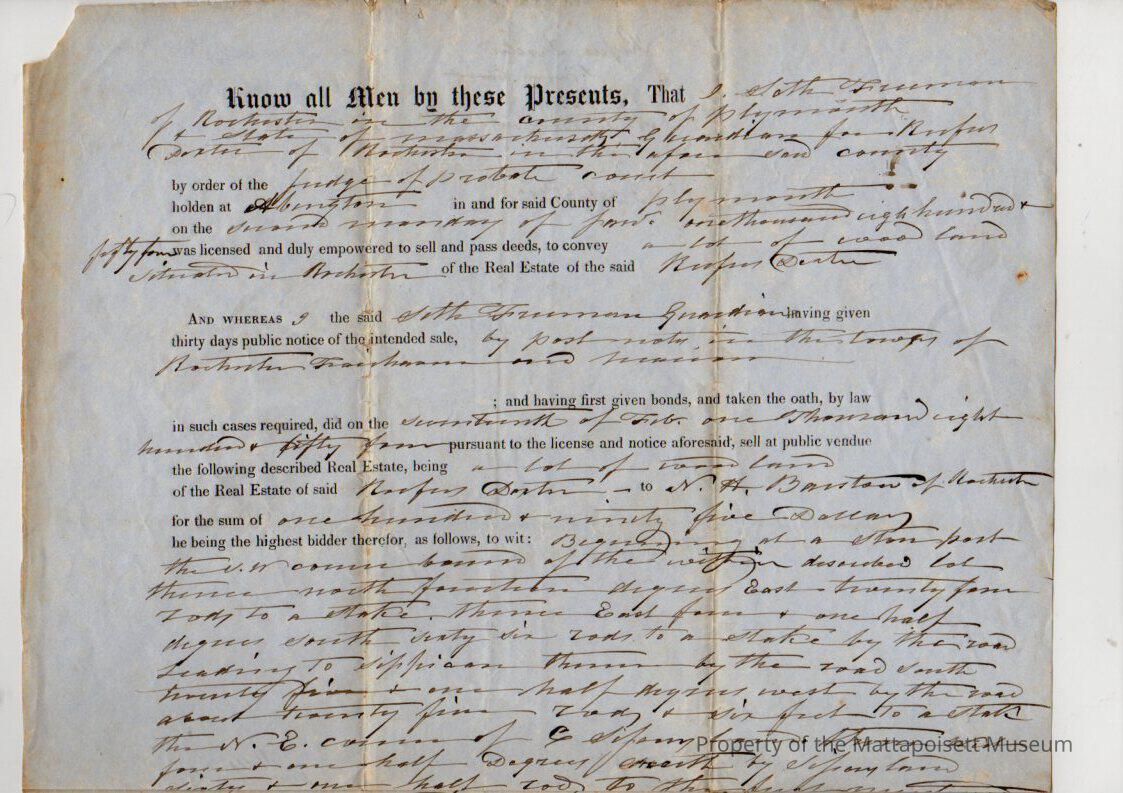 Know all Men by these Presents, That I Seth Freeman
of Rochester in the county of Plymouth
& State of massachusetts Guardian for Rufus
Dexter of Rochester in the afore said county
by order of the judge of Probate court
holden at Abington in and for said County of plymouth
on the second monday of Jan. onethousand eighhundred &
fifty four was licensed and duly empowered to sell and pass deeds, to convey a lot of wood land
situated in Rochester of the Real Estate of the said Rufus Dexter
AND WHEREAS I the said Seth Freeman Guardian having given
thirty days public notice of the intended sale, by post notis in the towns of
Rochester Fairhaven and marion
; and having first given bonds, and taken the oath, by law
in such cases required, did on the seventeenth of Feb. one thousand eight
hundred & fifty four pursuant to the license and notice aforesaid, sell at public vendue
the following described Real Estate, being a lot of wood land
of the Real Estate of said Rufus Dexter to N. H. Barstow of Rochester
for the sum of one hundred & ninety five Dollars
he being the highest bidder therefor, as follows, to wit: Beginning at a ston post
the S.W corner bound of the within described lot
thence north fourteen degrees East twenty four
rods to a stake. thence East four & one half
degrees south sixty six rods to a stake by the road
Leading to Sippican thence by the road South
twenty five & one half degrees west by the road
about twenty five rods & six feet to a stake
the N. E. corner of C land thence west
four & one half Degrees north by land
sixty & one half rods to the first
Property of the Mattapoisett Museum